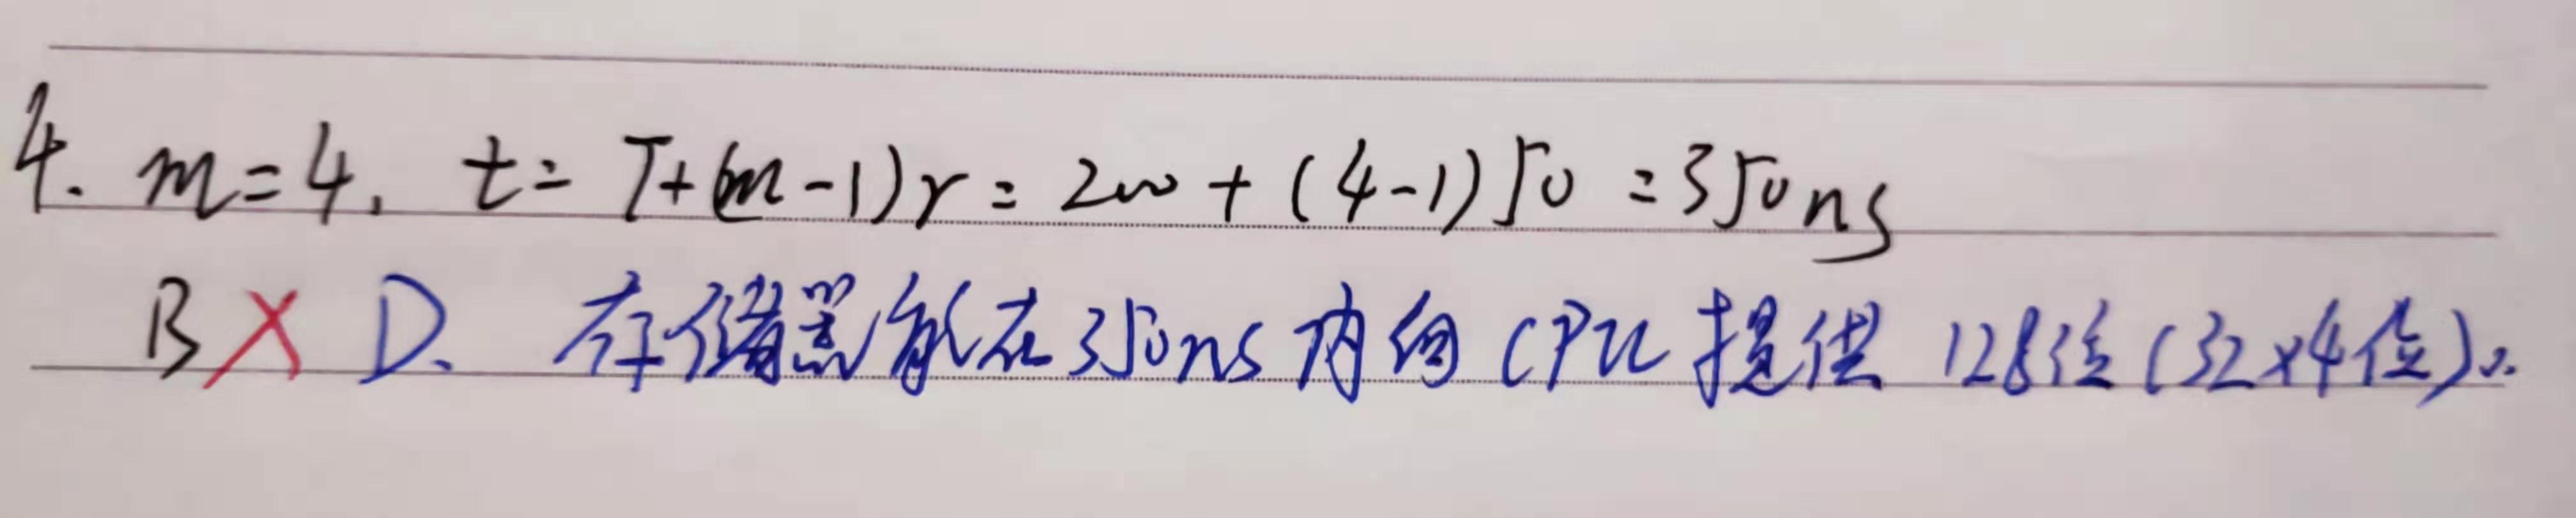 4. m=4. t= T+(m-1)r = 200 + (4-1)50 =350ns
B X D. 存储器能在350ns内向CPU提供 128位(32×4位)。